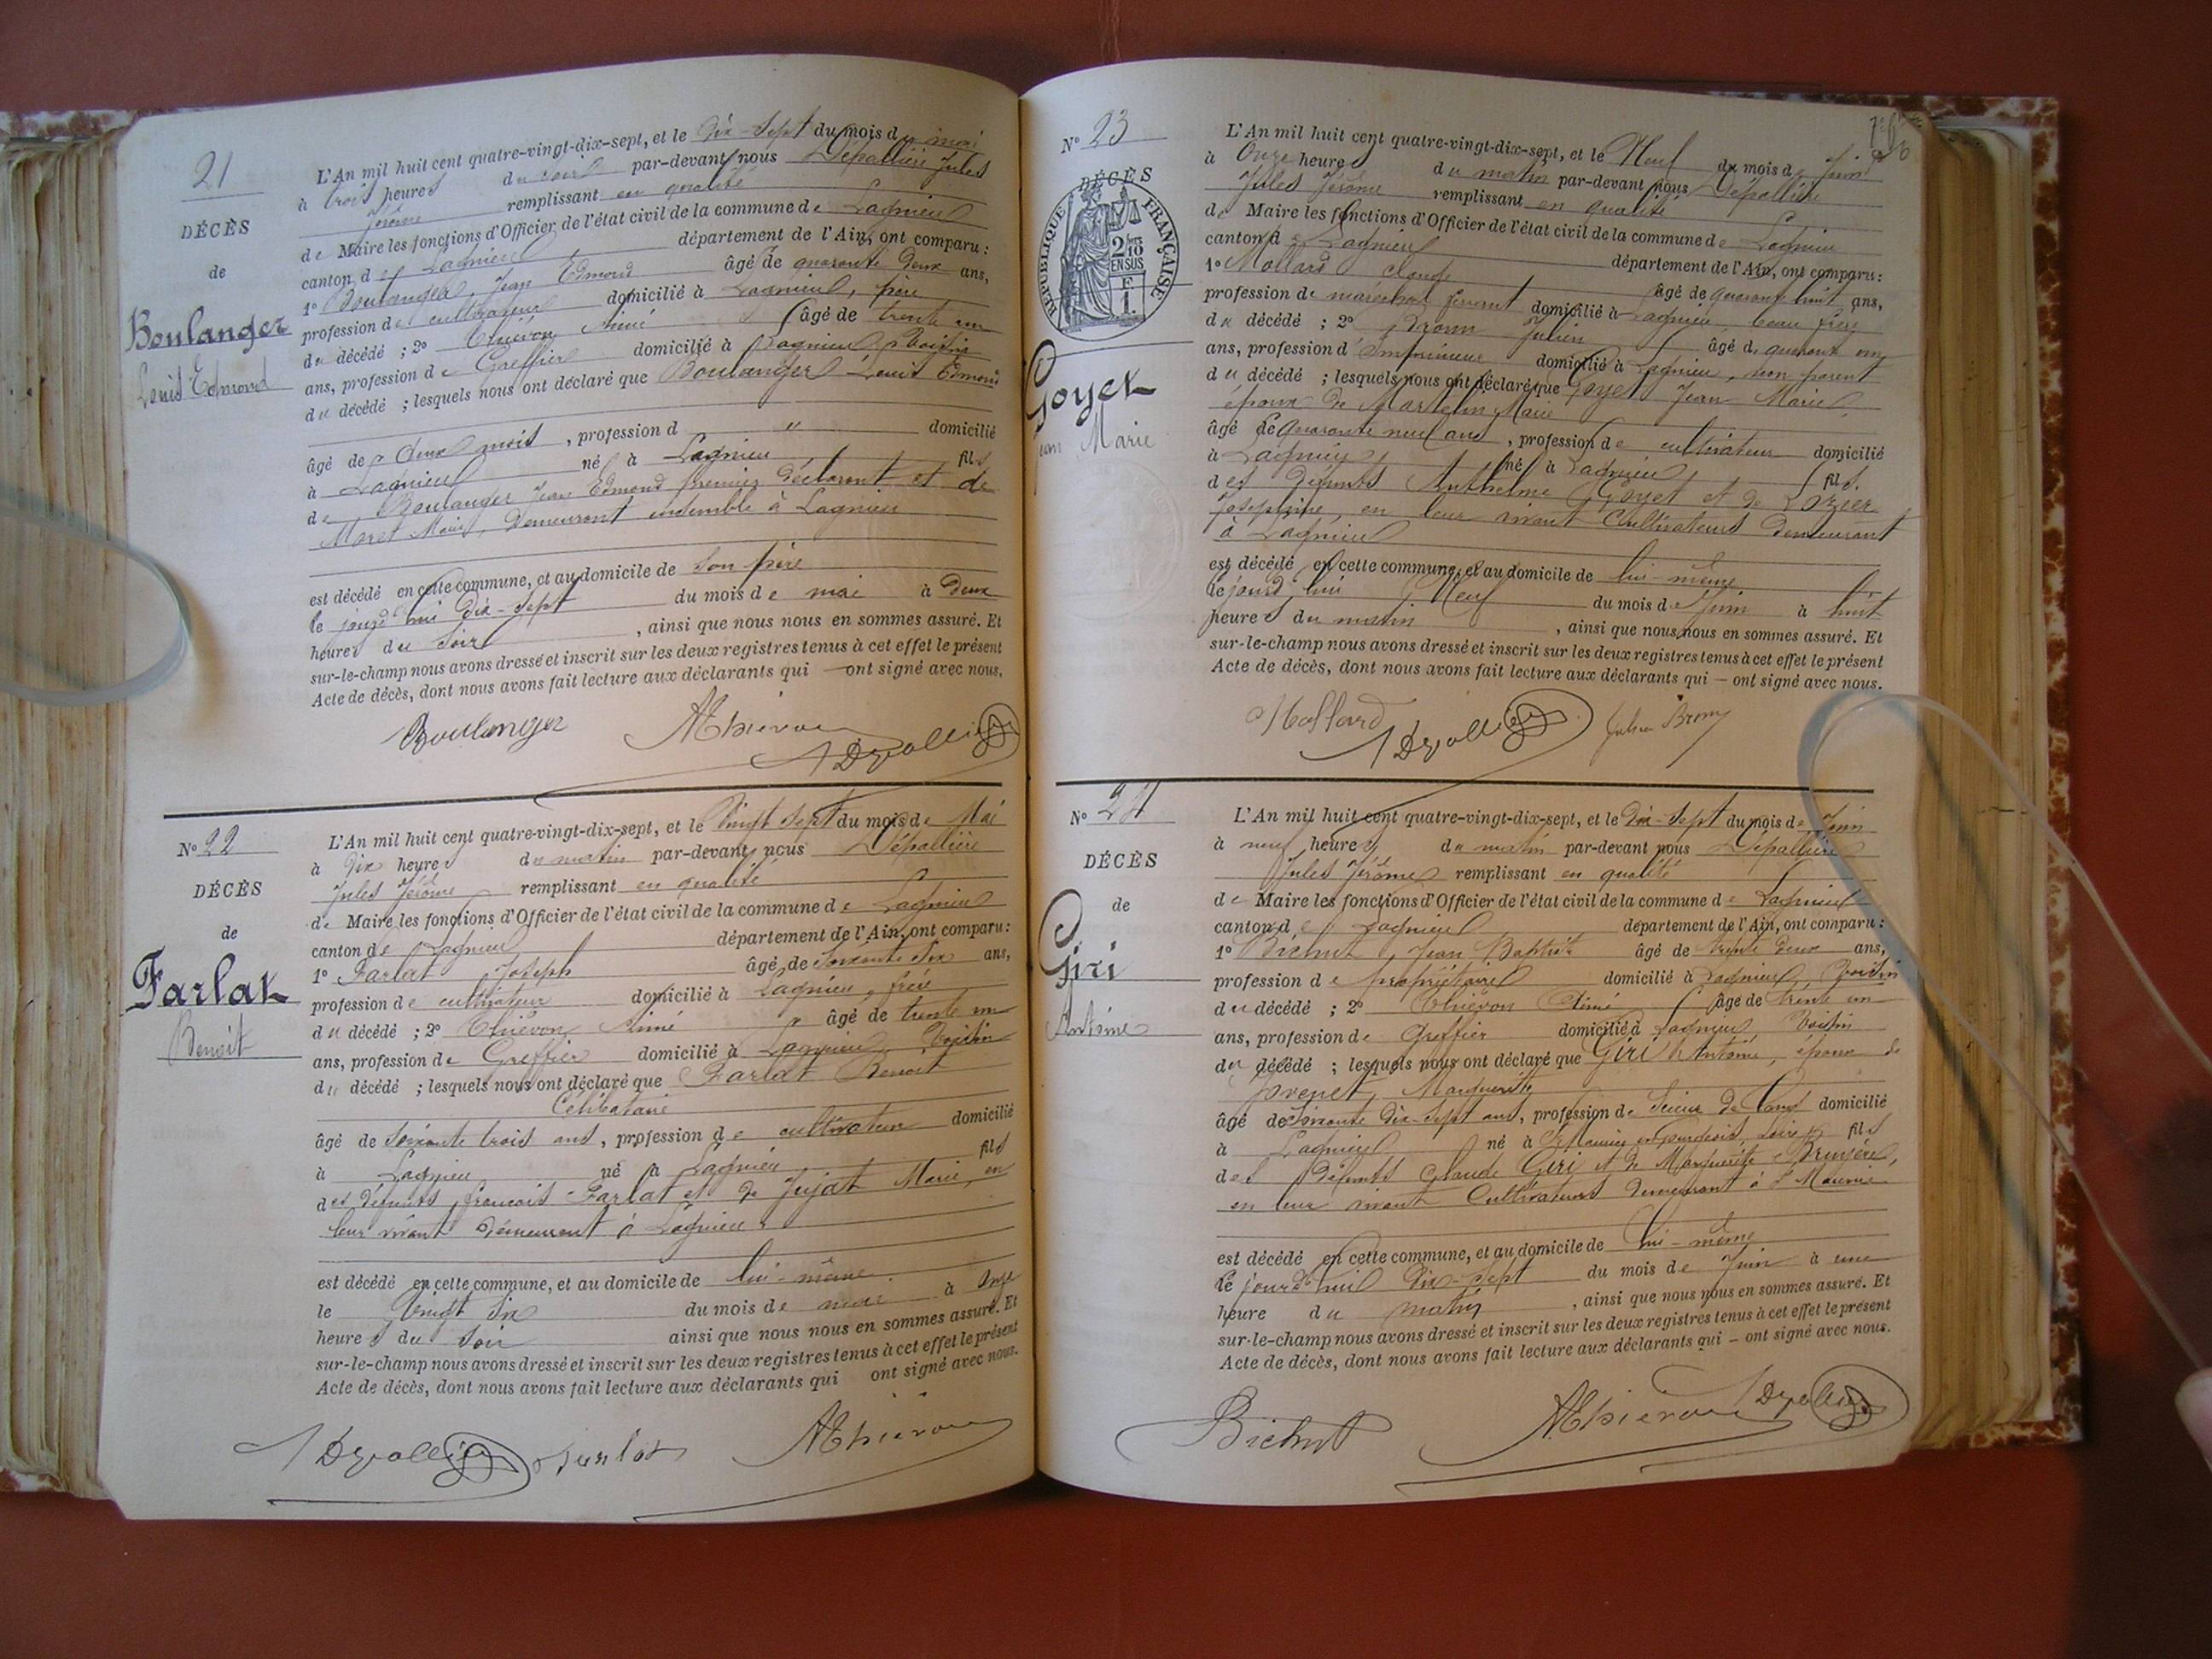 21
DÉCÈS
de
Boulanger
Louis Edmond
L'An mil huit cent quatre-vingt-dix-sept, et le Dix-Sept du mois de mai
à trois heures du soir par-devant nous Dépallière Jules
Jérôme remplissant en qualité
de Maire les fonctions d'Officier de l'état civil de la commune de Lagnieu
canton de Lagnieu département de l'Ain, ont comparu :
1° Boulanger Jean Edmond âgé de quarante deux ans,
profession de cultivateur domicilié à Lagnieu, père
du décédé ; 2° Thiévon Aimé âgé de trente un
ans, profession de Greffier domicilié à Lagnieu, Voisin
du décédé ; lesquels nous ont déclaré que Boulanger Louis Edmond
âgé de deux mois, profession d " domicilié
à Lagnieu né à Lagnieu fils
de Boulanger Jean Edmond premier déclarant et de
Moret Marie, Demeurant ensemble à Lagnieu
est décédé en cette commune, et au domicile de son père
le jourd'hui Dix-Sept du mois de mai à Deux
heures du Soir, ainsi que nous nous en sommes assuré. Et
sur-le-champ nous avons dressé et inscrit sur les deux registres tenus à cet effet le présent
Acte de décès, dont nous avons fait lecture aux déclarants qui — ont signé avec nous.
Boulanger AThiévon JDépallière
N° 22
DÉCÈS
de
Farlat
Benoit
L'An mil huit cent quatre-vingt-dix-sept, et le Vingt Sept du mois de Mai
à Dix heures du matin par-devant nous Dépallière
Jules Jérôme remplissant en qualité
de Maire les fonctions d'Officier de l'état civil de la commune de Lagnieu
canton de Lagnieu département de l'Ain, ont comparu :
1° Farlat Joseph âgé de Soixante Six ans,
profession de cultivateur domicilié à Lagnieu, frère
du décédé ; 2° Thiévon Aimé âgé de trente un
ans, profession de Greffier domicilié à Lagnieu, Voisin
du décédé ; lesquels nous ont déclaré que Farlat Benoit
Célibataire
âgé de Soixante trois ans, profession de cultivateur domicilié
à Lagnieu né à Lagnieu fils
des Défunts françois Farlat et de Jujat Marie, en
leur vivant Demeurant à Lagnieu
est décédé en cette commune, et au domicile de lui-même
le Vingt Six du mois de mai à Onze
heures du Soir ainsi que nous nous en sommes assuré. Et
sur-le-champ nous avons dressé et inscrit sur les deux registres tenus à cet effet le présent
Acte de décès, dont nous avons fait lecture aux déclarants qui ont signé avec nous.
JDépallière Farlat AThiévon
N° 23
DÉCÈS
RÉPUBLIQUE FRANÇAISE
2/10 EN SUS
Goyet
Jean Marie
L'An mil huit cent quatre-vingt-dix-sept, et le Neuf du mois de Juin
à Onze heures du matin par-devant nous Dépallière
Jules Jérôme remplissant en qualité
de Maire les fonctions d'Officier de l'état civil de la commune de Lagnieu
canton de Lagnieu département de l'Ain, ont comparu :
1° Mollard Claude âgé de quarante huit ans,
profession de maréchal ferrant domicilié à Lagnieu, beau frère
du décédé ; 2° Julien âgé de quarante
ans, profession d'Imprimeur domicilié à Lagnieu, non parent
du décédé ; lesquels nous ont déclaré que Goyet Jean Marie,
époux de Martelin Marie
âgé de quarante neuf ans, profession de cultivateur domicilié
à Lagnieu né à Lagnieu fils
des Défunts Anthelme Goyet et de Lozier
Josephine, en leur vivant Cultivateurs Demeurant
à Lagnieu
est décédé en cette commune, et au domicile de lui-même
le jourd'hui Neuf du mois de Juin à huit
heures du matin, ainsi que nous nous en sommes assuré. Et
sur-le-champ nous avons dressé et inscrit sur les deux registres tenus à cet effet le présent
Acte de décès, dont nous avons fait lecture aux déclarants qui — ont signé avec nous.
Mollard JDépallière Julien
N° 24
DÉCÈS
de
Giri
Antoine
L'An mil huit cent quatre-vingt-dix-sept, et le Dix-Sept du mois de Juin
à neuf heures du matin par-devant nous Dépallière
Jules Jérôme remplissant en qualité
de Maire les fonctions d'Officier de l'état civil de la commune de Lagnieu
canton de Lagnieu département de l'Ain, ont comparu :
1° Bichut Jean Baptiste âgé de trente deux ans,
profession de propriétaire domicilié à Lagnieu, Voisin
du décédé ; 2° Thiévon Aimé âgé de trente un
ans, profession de Greffier domicilié à Lagnieu, Voisin
du décédé ; lesquels nous ont déclaré que Giri Antoine, époux de
Marguerite
âgé de Soixante Dix-Sept ans, profession de Scieur de Long domicilié
à Lagnieu né à St Maurice en Gourgois, Loire fils
des Défunts Claude Giri et de Marguerite Bruyère,
en leur vivant Cultivateurs Demeurant à St Maurice
est décédé en cette commune, et au domicile de lui-même
le jourd'hui Dix-Sept du mois de Juin à une
heure du matin, ainsi que nous nous en sommes assuré. Et
sur-le-champ nous avons dressé et inscrit sur les deux registres tenus à cet effet le présent
Acte de décès, dont nous avons fait lecture aux déclarants qui — ont signé avec nous.
Bichut AThiévon JDépallière